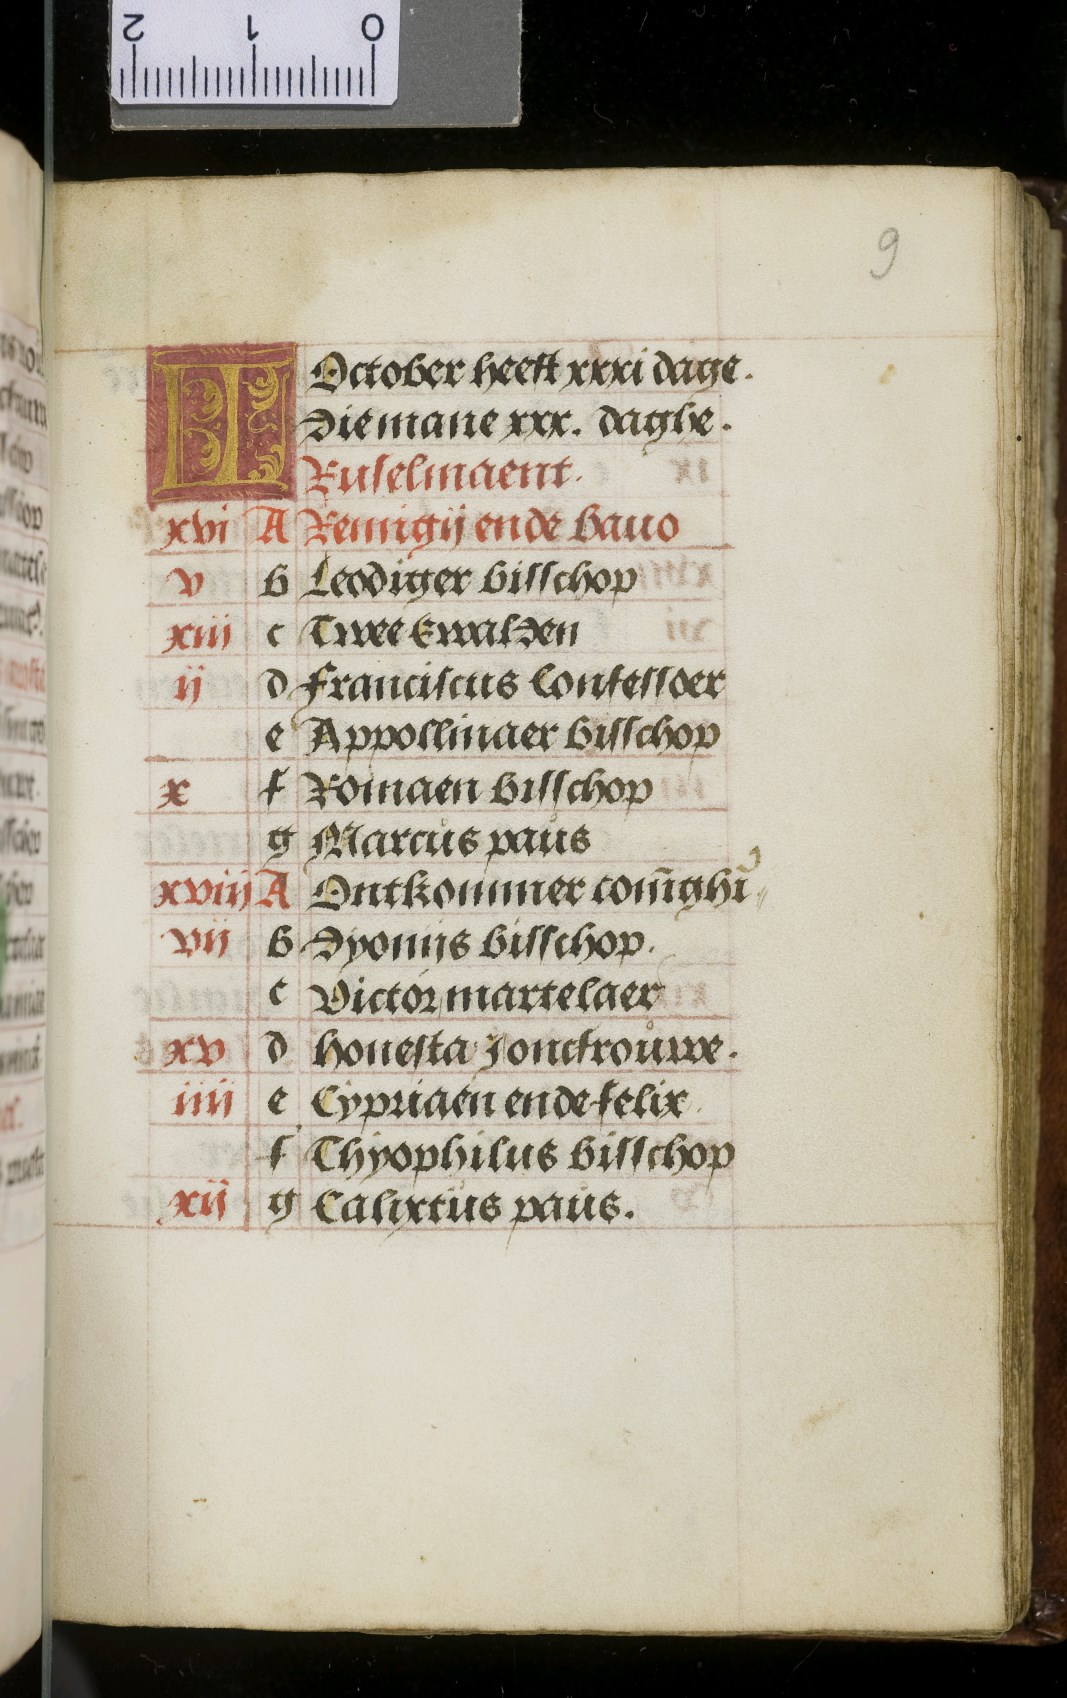 2 1 0
9
KL October heeft xxxi dage.
Die mane xxx. daghe.
Ruselmaent.
xvi A Remigij ende bauo
v b Leodiger bisschop
xiii c Twee Ewalden
ij d Franciscus Confessoer
e Appollinaer bisschop
x f Romaen bisschop
g Marcus paus
xviij A Ontkommer
vij b Dyonijs bisschop.
c Victor martelaer
xv d honesta Joncfrouwe.
iiij e Cypriaen ende felix
f Thyophilus bisschop
xij g Calixtus paus.